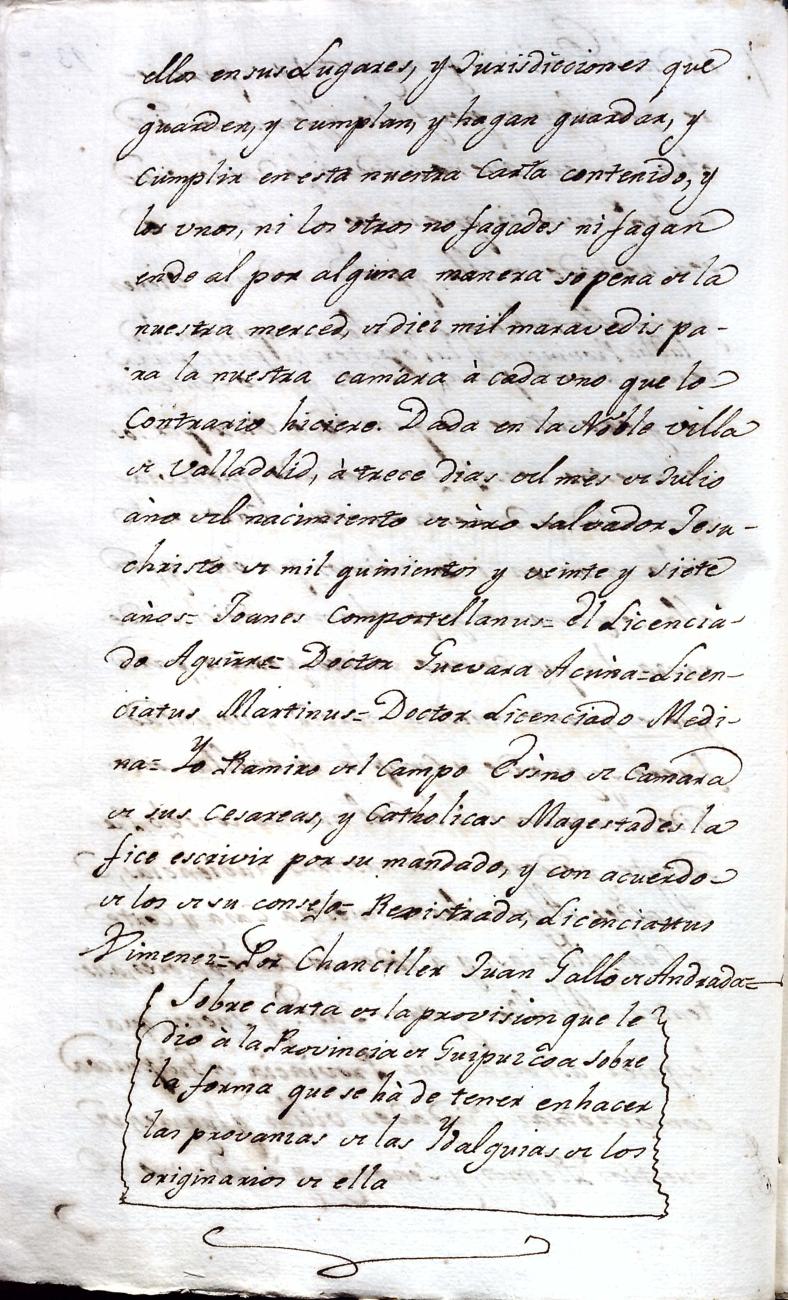 ellos en sus Lugares, y Jurisdicciones que
guarden, y cumplan, y hagan guardar, y
cumplir en esta nuestra Carta contenido, y
los unos, ni los otros no fagades ni fagan
ende al por alguna manera so pena de la
nuestra merced, de diez mil maravedis pa-
ra la nuestra camara à cada uno que lo
contrario hiciere. Dada en la Noble villa
de Valladolid, à trece dias del mes de Julio
año del nacimiento de nro Salvador Jesu-
christo de mil quinientos y veinte y siete
años= Joanes Compostellanus= El Licencia-
do Aguirre= Doctor Guevara Acuña= Licen-
ciatus Martinus= Doctor Licenciado Medi-
na= Yo Ramiro del Campo Esno de Camara
de sus Cesareas, y Catholicas Magestades la
fice escrivir por su mandado, y con acuerdo
de los de su consejo= Registrada, Licenciattus
Ximenez= Por Chanciller Juan Gallo de Andrada=
Sobre carta de la provision que le
dio à la Provincia de Guipuzcoa sobre
la forma que se hà de tener en hacer
las provanzas de las Ydalguias de los
originarios de ella